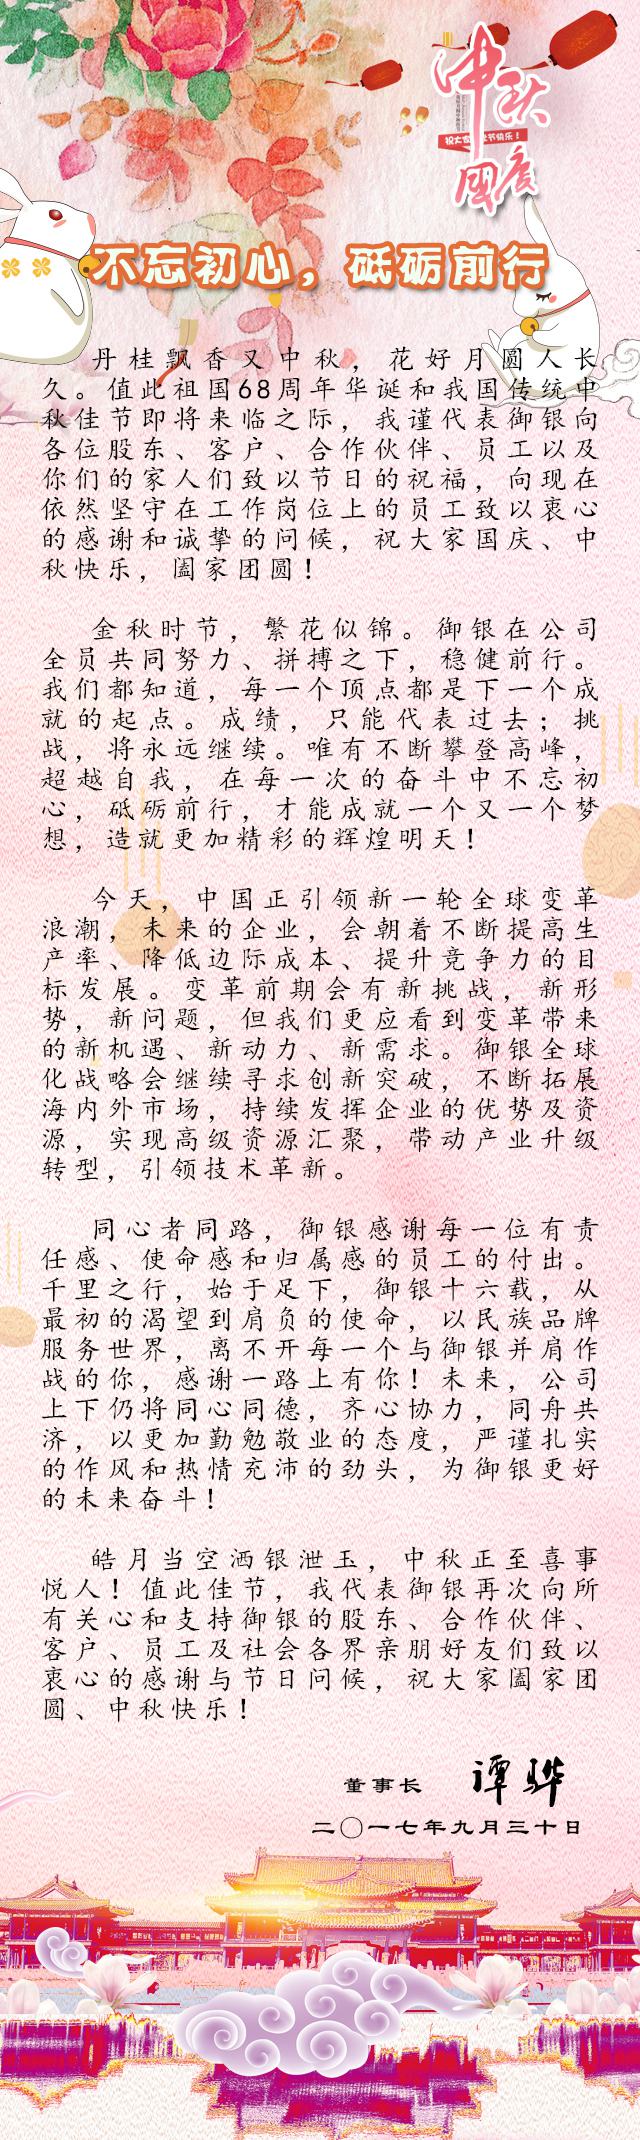 中秋
祝大家 节快乐！
國庆
不忘初心，砥砺前行
丹桂飘香又中秋，花好月圆人长
久。值此祖国68周年华诞和我国传统中
秋佳节即将来临之际，我谨代表御银向
各位股东、客户、合作伙伴、员工以及
你们的家人们致以节日的祝福，向现在
依然坚守在工作岗位上的员工致以衷心
的感谢和诚挚的问候，祝大家国庆、中
秋快乐，阖家团圆！
金秋时节，繁花似锦。御银在公司
全员共同努力、拼搏之下，稳健前行。
我们都知道，每一个顶点都是下一个成
就的起点。成绩，只能代表过去；挑
战，将永远继续。唯有不断攀登高峰，
超越自我，在每一次的奋斗中不忘初
心，砥砺前行，才能成就一个又一个梦
想，造就更加精彩的辉煌明天！
今天，中国正引领新一轮全球变革
浪潮，未来的企业，会朝着不断提高生
产率、降低边际成本、提升竞争力的目
标发展。变革前期会有新挑战，新形
势，新问题，但我们更应看到变革带来
的新机遇、新动力、新需求。御银全球
化战略会继续寻求创新突破，不断拓展
海内外市场，持续发挥企业的优势及资
源，实现高级资源汇聚，带动产业升级
转型，引领技术革新。
同心者同路，御银感谢每一位有责
任感、使命感和归属感的员工的付出。
千里之行，始于足下，御银十六载，从
最初的渴望到肩负的使命，以民族品牌
服务世界，离不开每一个与御银并肩作
战的你，感谢一路上有你！未来，公司
上下仍将同心同德，齐心协力，同舟共
济，以更加勤勉敬业的态度，严谨扎实
的作风和热情充沛的劲头，为御银更好
的未来奋斗！
皓月当空洒银泄玉，中秋正至喜事
悦人！值此佳节，我代表御银再次向所
有关心和支持御银的股东、合作伙伴、
客户、员工及社会各界亲朋好友们致以
衷心的感谢与节日问候，祝大家阖家团
圆、中秋快乐！
董事长 谭骅
二〇一七年九月三十日